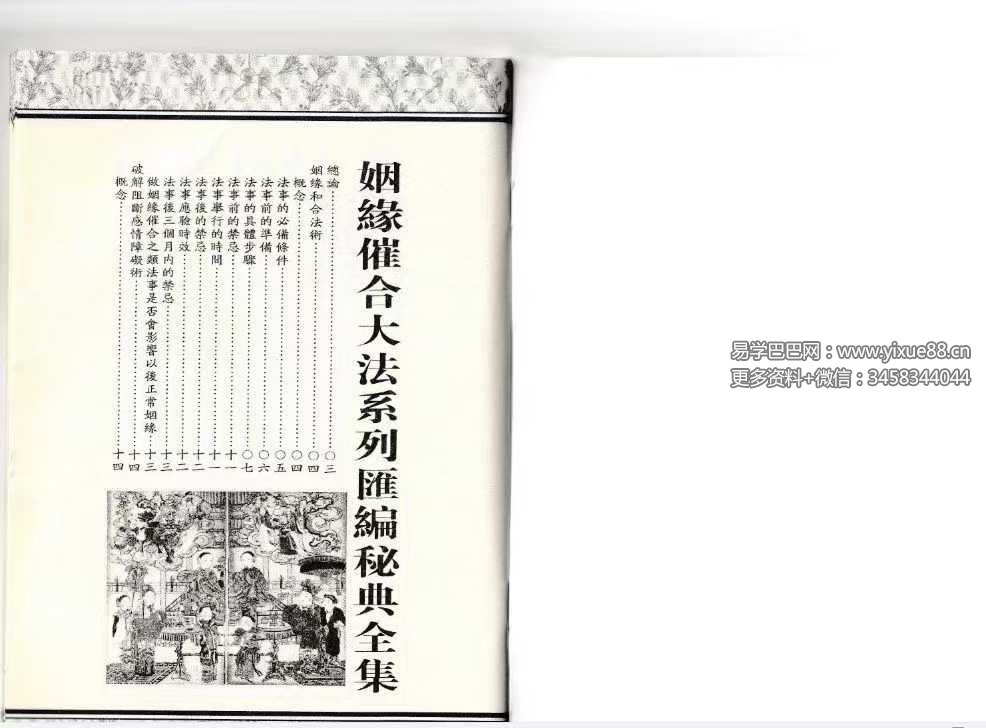 姻緣催合大法系列匯編秘典全集
總論……〇三
姻緣和合法術……〇四
概念……〇四
法事的必備條件……〇五
法事前的準備……〇六
法事的具體步驟……〇七
法事前的禁忌……十一
法事舉行的時間……十一
法事後的禁忌……十二
法事應驗時效……十二
法事後三個月內的禁忌……十三
做姻緣催合之類法事是否會影響以後正常姻緣…十三
破解阻斷感情障礙術……十四
概念……十四
易学巴巴网：www.yixue88.cn
更多资料+微信：3458344044